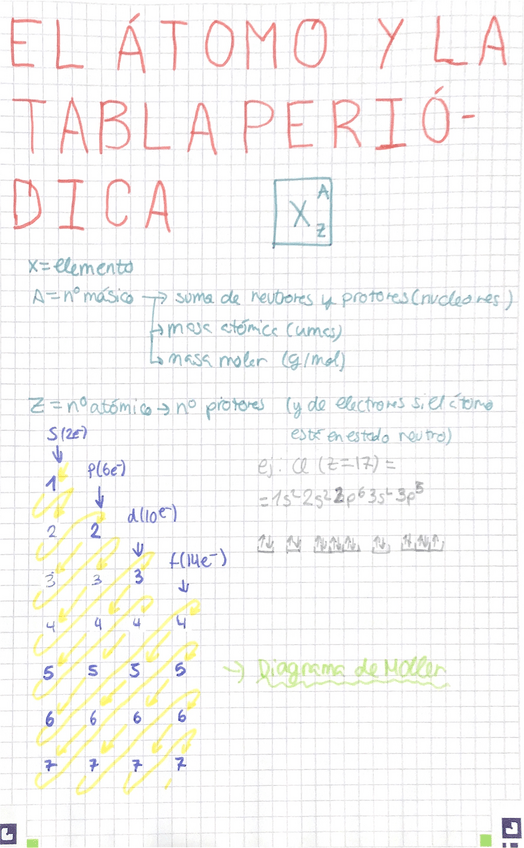 EL ÁTOMO Y LA
TABLA PERIÓ-
DICA
X A Z
X=elemento
A=nº másico → suma de neutrones y protones (nucleones)
→ masa atómica (umas)
→ masa molar (g/mol)
Z=nº atómico → nº protones (y de electrones si el átomo
está en estado neutro)
S(2e⁻)
p(6e⁻)
d(10e⁻)
f(14e⁻)
ej: Cl (Z=17) =
=1s²2s²2p⁶3s²3p⁵
1
2 2
3 3 3
4 4 4 4
5 5 5 5
6 6 6 6
7 7 7 7
→ Diagrama de Moller